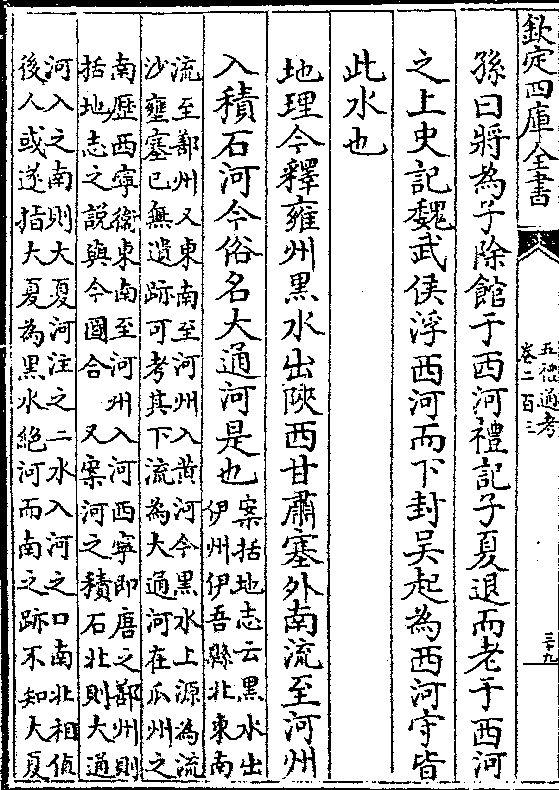 欽定四庫全書
五禮通考
卷二百三
三十九
孫曰將為子除館于西河禮記子夏退而老于西河
之上史記魏武侯浮西河而下封吳起為西河守皆
此水也
地理今釋雍州黑水出陝西甘肅塞外南流至河州
入積石河今俗名大通河是也
案括地志云黑水出
伊州伊吾縣北東南
流至鄯州又東南至河州入黄河今黑水上源為流
沙壅塞已無遺跡可考其下流為大通河在瓜州之
南歴西寧衛東南至河州入河西寧即唐之鄯州則
括地志之說與今圖合 又案河之積石北則大通
河入之南則大夏河注之二水入河之口南北相值
後人或遂指大夏為黑水絶河而南之跡不知大夏